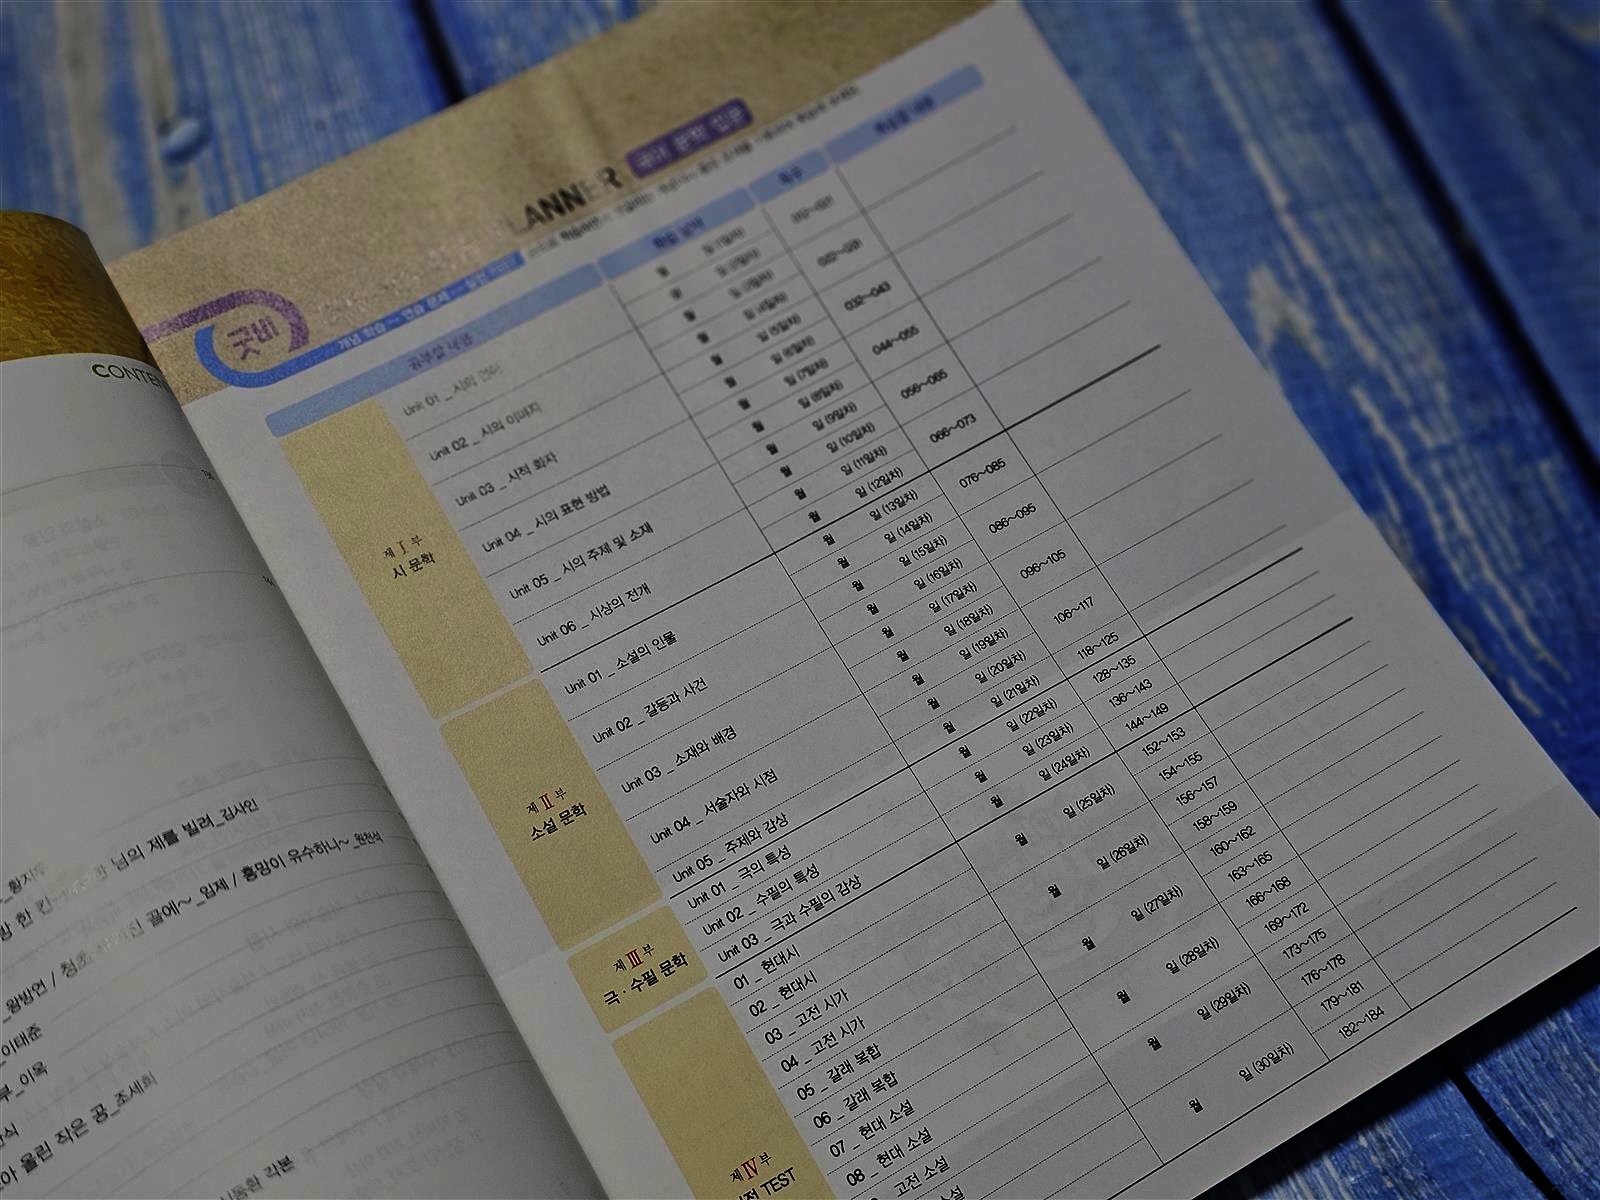 CONTEN
황지우
님의 제를 빌려_김사인
방 한 칸
흥망이 유수하니~ _원천석
끝에~ _임제 /
_왕방연 /
_이태준
부_이옥
아 올린 작은 공_조세희
각본
LANNER
국어 문학 입문
굿비
개념 학습
연습 문제
공부할 내용
Unit 01 _ 시의 언어
Unit 02 _ 시의 이미지
Unit 03 _ 시적 화자
Unit 04 _ 시의 표현 방법
Unit 05 _ 시의 주제 및 소재
Unit 06 _ 시상의 전개
제 I 부
시 문학
Unit 01 _ 소설의 인물
Unit 02 _ 갈등과 사건
Unit 03 _ 소재와 배경
Unit 04 _ 서술자와 시점
Unit 05 _ 주제와 감상
제 II 부
소설 문학
Unit 01 _ 극의 특성
Unit 02 _ 수필의 특성
Unit 03 _ 극과 수필의 감상
제 III 부
극 · 수필 문학
01 _ 현대시
02 _ 현대시
03 _ 고전 시가
04 _ 고전 시가
05 _ 갈래 복합
06 _ 갈래 복합
07 _ 현대 소설
08 _ 현대 소설
고전 소설
소설
제 IV 부
TEST
월 일 (5일차)
월 일 (6일차)
월 일 (7일차)
월 일 (8일차)
월 일 (9일차)
월 일 (10일차)
월 일 (11일차)
월 일 (12일차)
월 일 (13일차)
월 일 (14일차)
월 일 (15일차)
월 일 (16일차)
월 일 (17일차)
월 일 (18일차)
월 일 (19일차)
월 일 (20일차)
월 일 (21일차)
월 일 (22일차)
월 일 (23일차)
월 일 (24일차)
월 일 (25일차)
월 일 (26일차)
월 일 (27일차)
월 일 (28일차)
월 일 (29일차)
월 일 (30일차)
쪽수
022~031
032~043
044~055
056~065
066~073
076~085
086~095
096~105
106~117
118~125
128~135
136~143
144~149
152~153
154~155
156~157
158~159
160~162
163~165
166~168
169~172
173~175
176~178
179~181
182~184